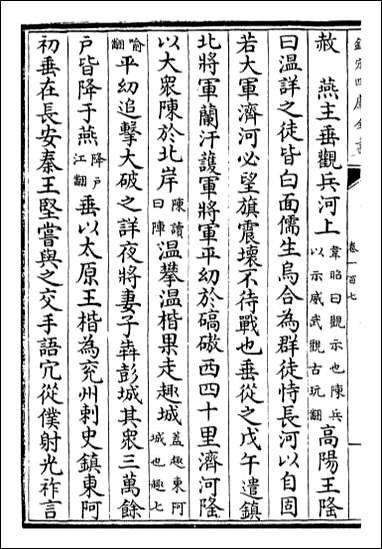 欽定四庫全書
卷一百七
赦　燕主垂觀兵河上韋昭曰觀示也陳兵以示威武觀古玩翻高陽王隆
曰温詳之徒皆白面儒生烏合為群徒恃長河以自固
若大軍濟河必望旗震壞不待戰也垂從之戊午遣鎮
北將軍蘭汗護軍將軍平幼於碻磝西四十里濟河隆
以大衆陳於北岸陳讀曰陣温攀温楷果走趣城蓋趣東阿城也趣七
喻翻平幼追擊大破之詳夜將妻子犇彭城其衆三萬餘
戸皆降于燕降戸江翻垂以太原王楷為兖州刺史鎮東阿
初垂在長安秦王堅嘗與之交手語宂從僕射光祚言